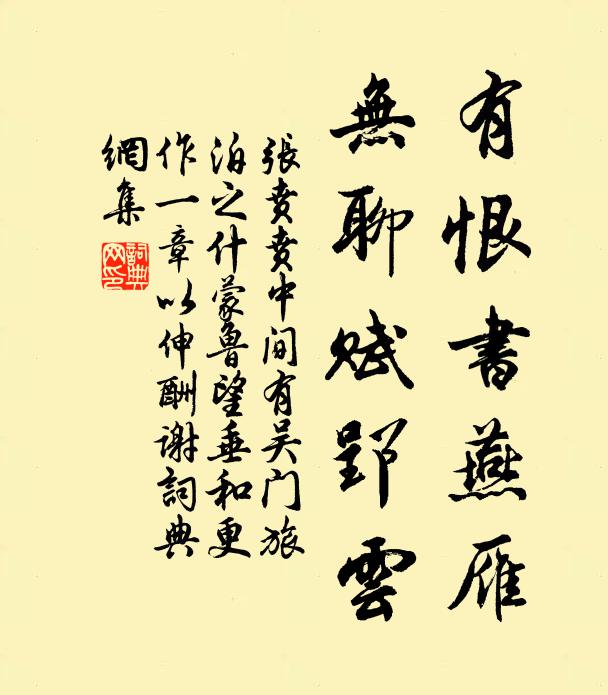 有恨書燕雁
無聊賦郢雲
張賁賁中间有吴门旅
泊之什蒙魯望垂和更
作一章以伸酬谢詞典
網集
詞典
网印